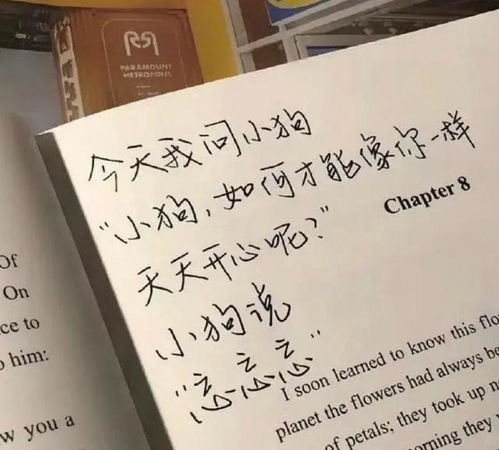 PARAMOUNT
METROPOLIS
今天我问小狗
“小狗，如何才能像你一样
天天开心呢？”
小狗说
“忘忘忘”
Chapter 8
Of
On
ce to
him:
w you a
I soon learned to know this flo
planet the flowers had always be
of petals; they took up n
orning they